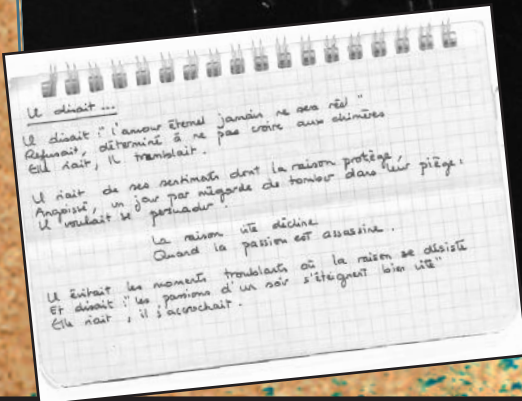 Il disait ...
Il disait : "l'amour éternel jamais ne sera réel"
Refusait, déterminé à ne pas croire aux chimères
Elle riait, Il tremblait.
Il riait de ses sentiments dont la raison protège,
Angoissé, un jour par mégarde de tomber dans leur piège,
Il voulait se persuader.
La raison vite décline
Quand la passion est assassine.
Il évitait les moments troublants où la raison se désiste
Et disait : "les passions d'un soir s'éteignent bien vite"
Elle riait, il s'accrochait.